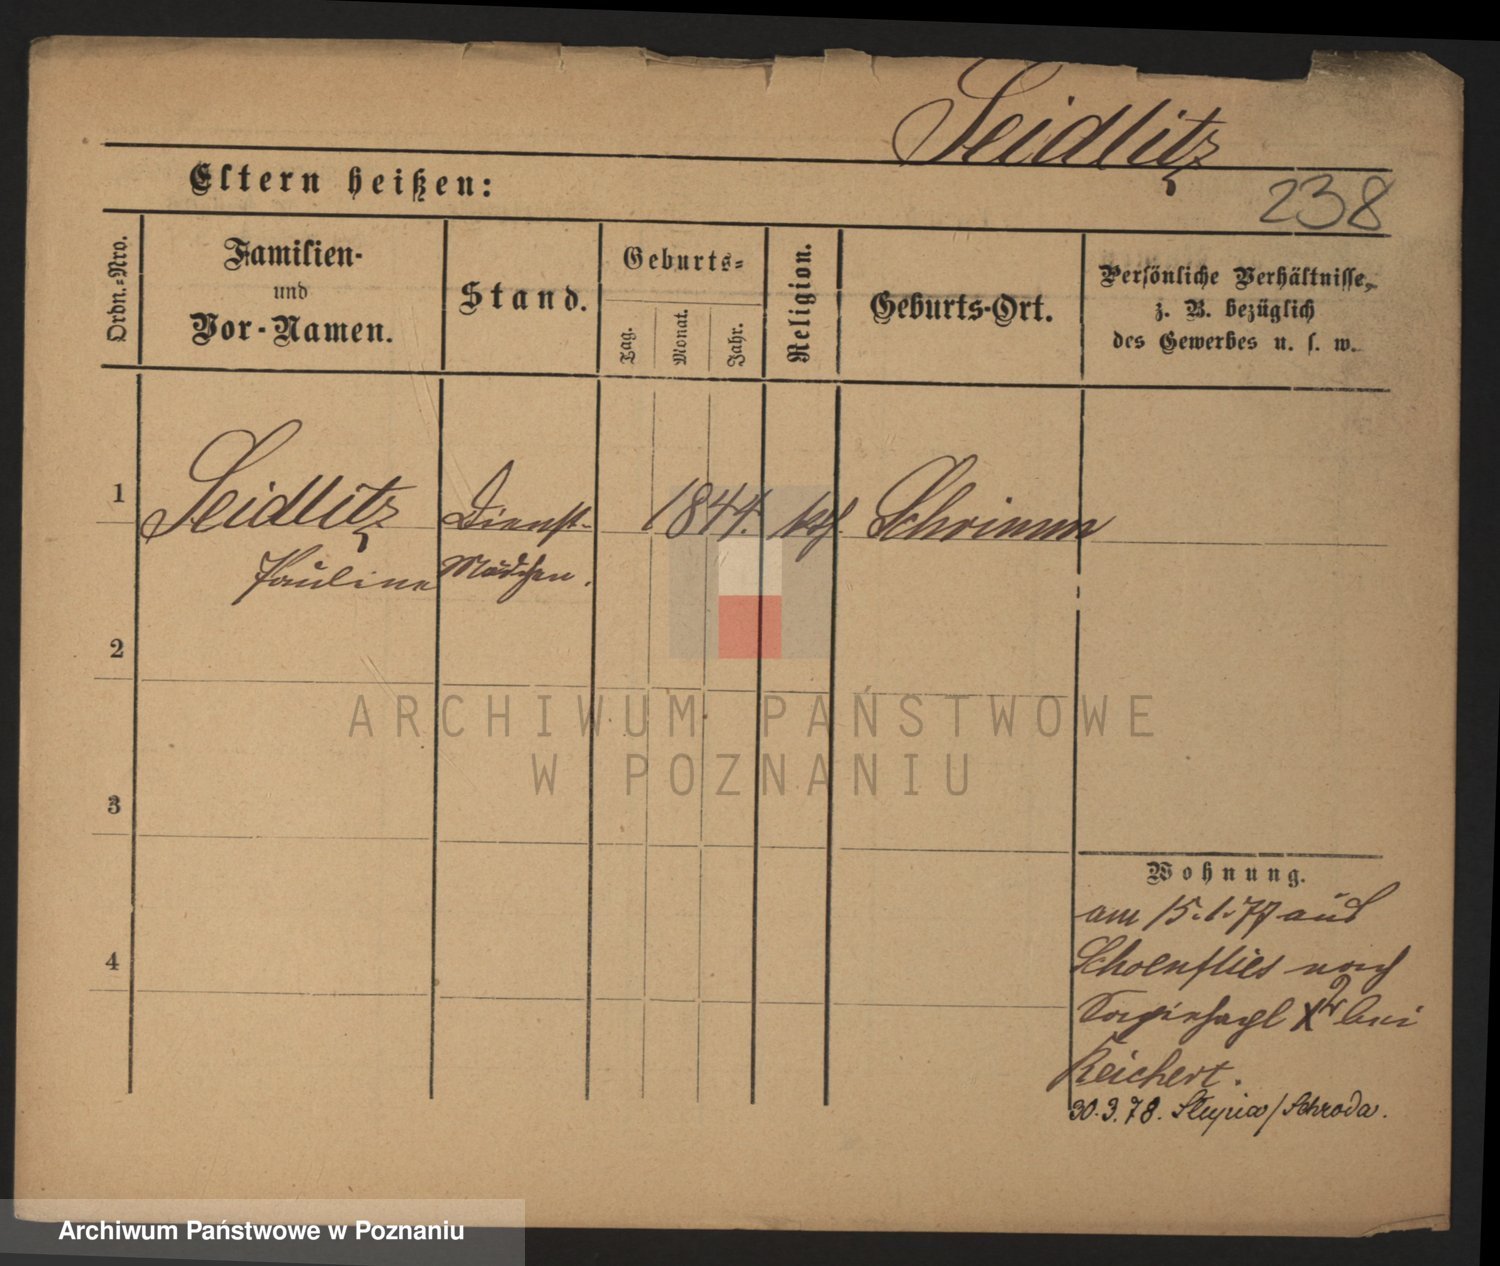 Seidlitz
238
Eltern heißen:
Ordn.-Nro.
Familien-
und
Vor-Namen.
Stand.
Geburts-
Tag.
Monat.
Jahr.
Religion.
Geburts-Ort.
Persönliche Verhältnisse,
z. B. bezüglich
des Gewerbes u. s. w.
1
Seidlitz
Pauline
Dienst-
Mädchen.
1844.
kth.
Schrimm
2
3
4
Wohnung.
am 15.1.77 aus
Schoenflies nach
bei
Reichert.
30.3.78. Slupia/Schroda.
ARCHIWUM PAŃSTWOWE
W POZNANIU
Archiwum Państwowe w Poznaniu